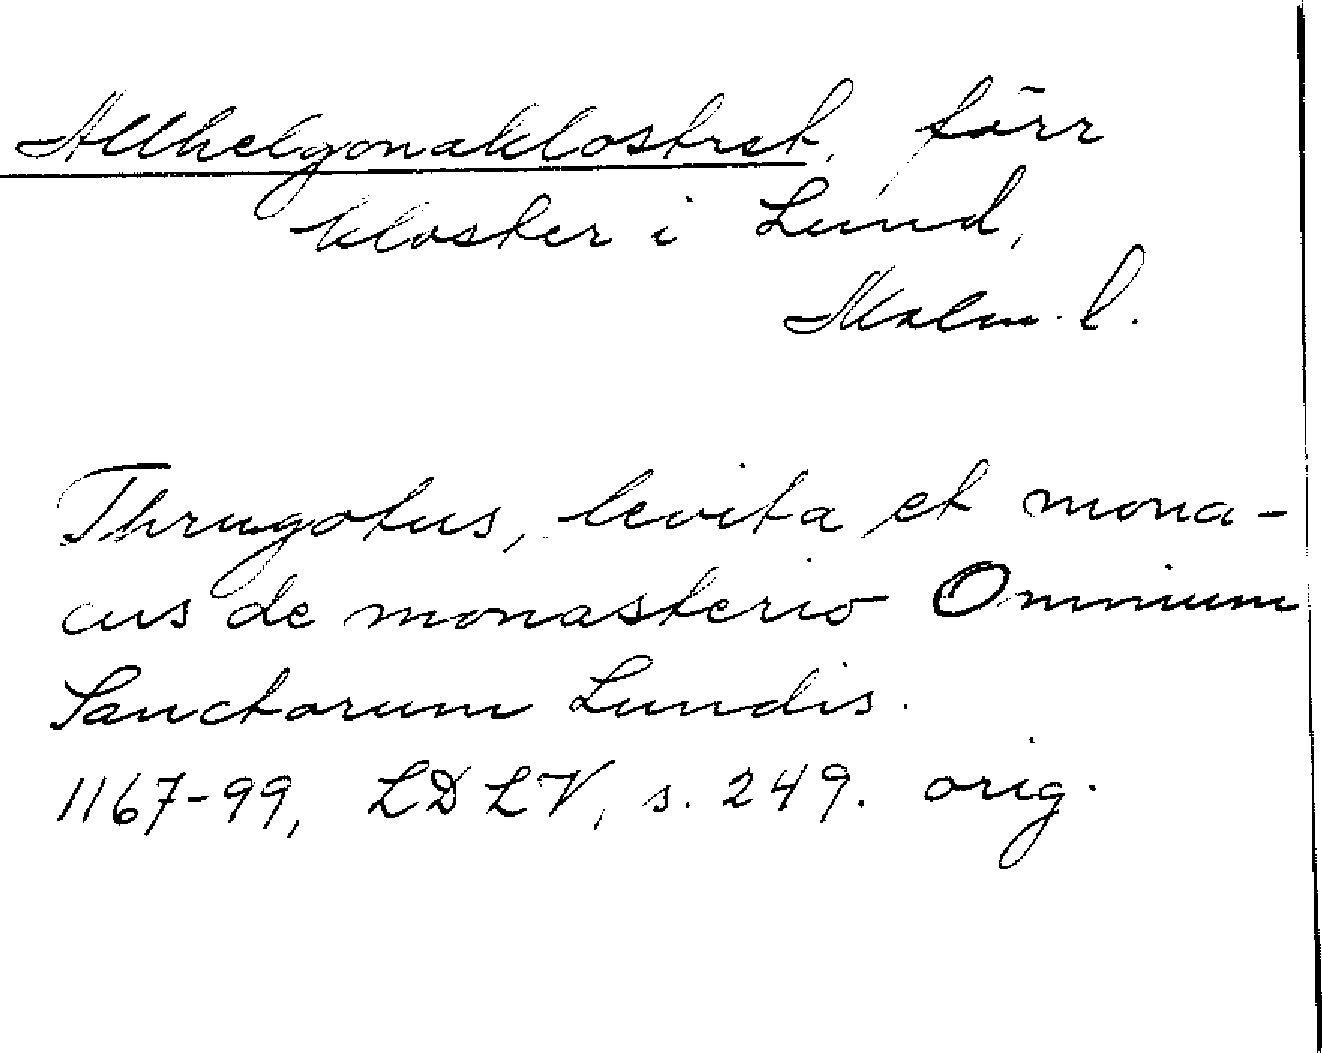 Allhelgonaklostret, förr
kloster i Lund,
Malm. l.
Thrugotus, levita et mona-
cus de monasterio Omnium
Sanctorum Lundis.
1167-99, LDLV, s. 249. orig.